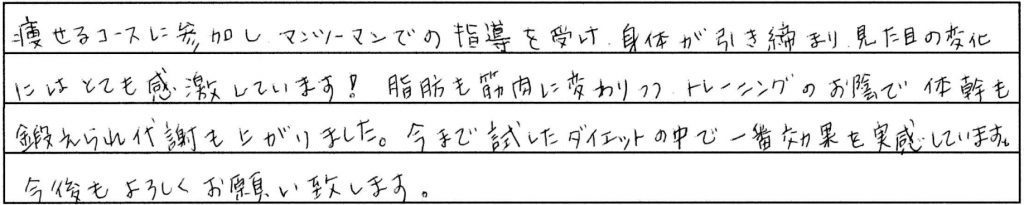 痩せるコースに参加し、マンツーマンでの指導を受け、身体が引き締まり、見た目の変化
にはとても感激しています! 脂肪も筋肉に変わりつつ、トレーニングのお陰で体幹も
鍛えられ代謝も上がりました。今まで試したダイエットの中で一番効果を実感しています。
今後もよろしくお願い致します。